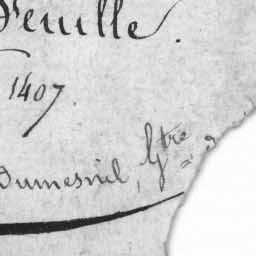 Feuille.
1407.
Dumesnil, G^tre